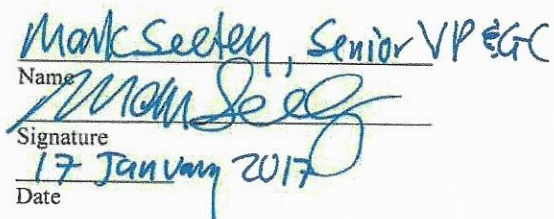 Mark Seeley, Senior VP & GC
Name
Mark Seeley
Signature
17 January 2017
Date